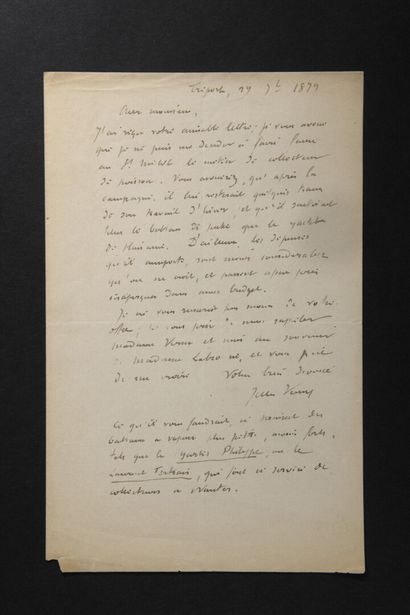 Tréport, 19 7bre 1879
Cher monsieur,
J'ai reçu votre aimable lettre; je vous avoue
que je ne puis me décider à faire faire
au St Michel le métier de collecteur
de poisson. Vous avouerez, qu'après la
campagne, il lui resterait quelques traces
de son travail d'hiver, et qu'il sentirait
plus le bateau de pêche que le yacht
de plaisance. D'ailleurs, les dépenses
qu'il comporte, sont moins considérables
qu'on ne croit, et passent à peu près
inaperçues dans mon budget.
Je ne vous remercie pas moins de votre
offre, je vous prie de nous rappeler
madame Verne et moi au souvenir
de madame et vous prie
de me croire Votre bien dévoué
Jules Verne
Ce qu'il vous faudrait, ce seraient des
bateaux à vapeur plus petits, mais forts,
tels que le Philippe, ou le
Laurent qui font ce service de
collecteurs à Nantes.